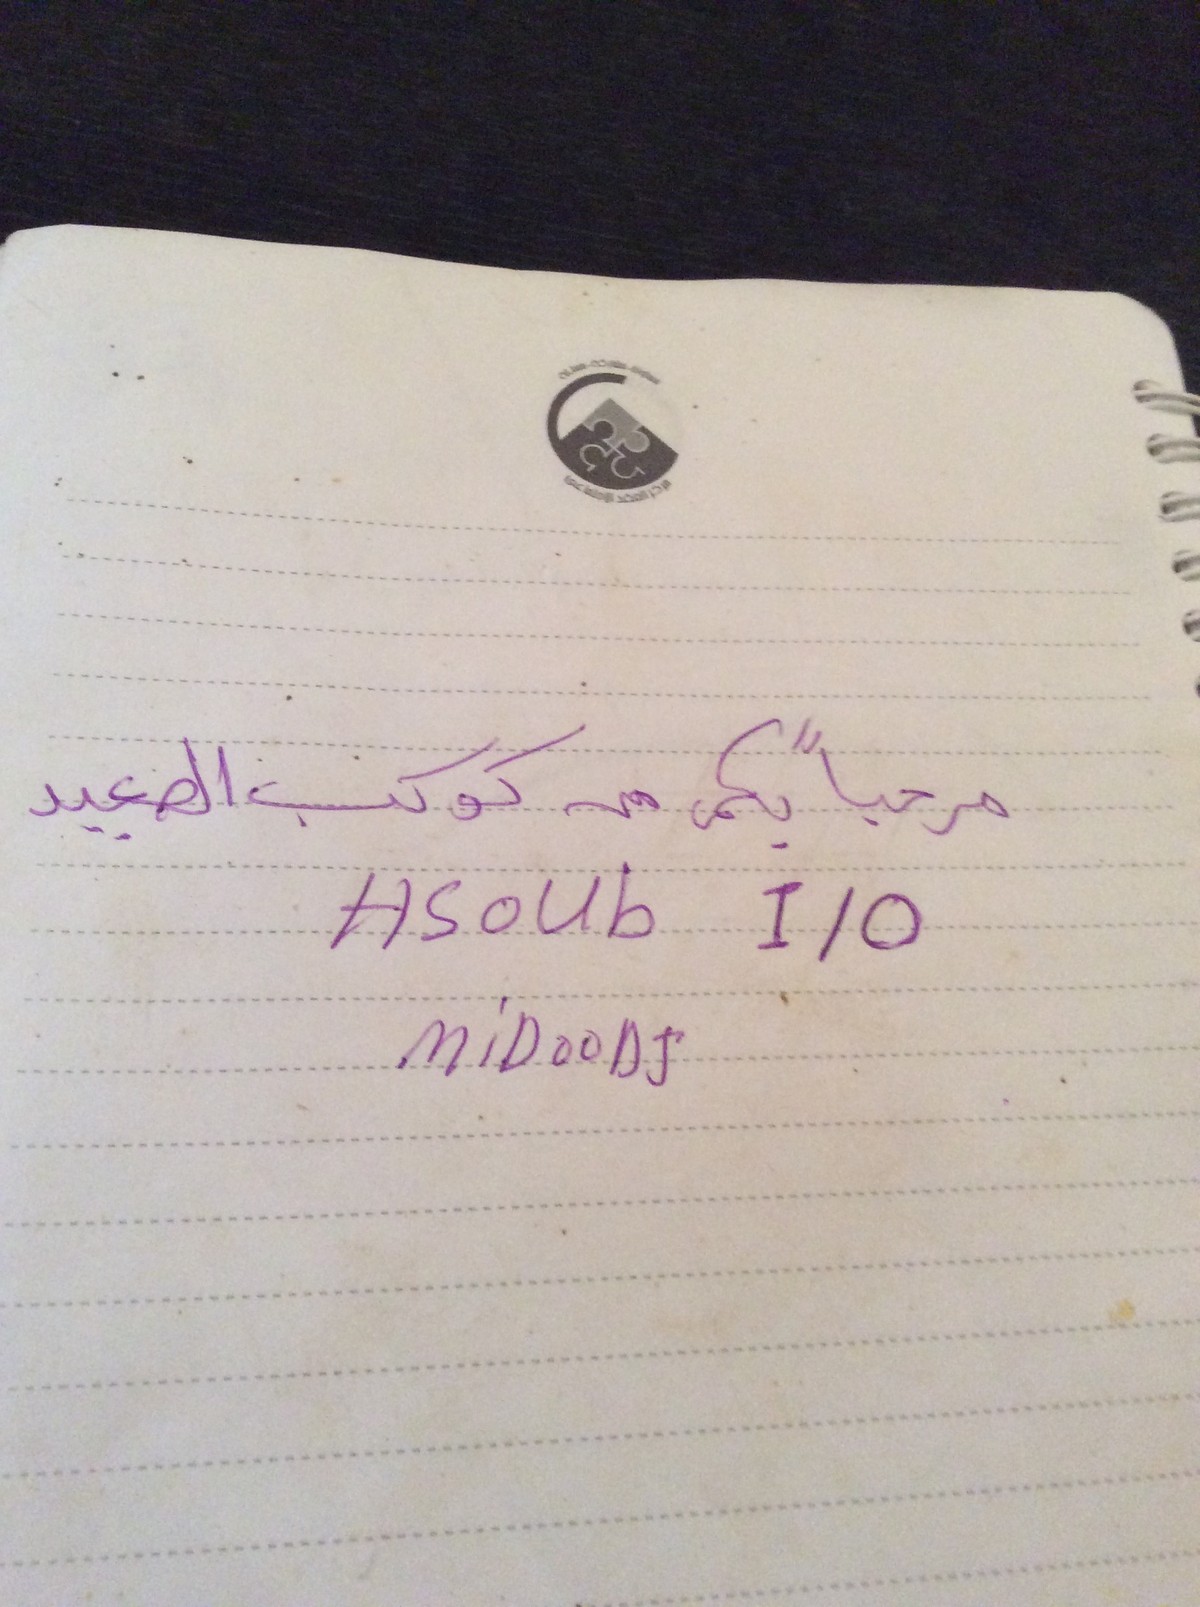 مرحباً بكم من كوكب الصعيد
HSOUb I/O
MiDooDj